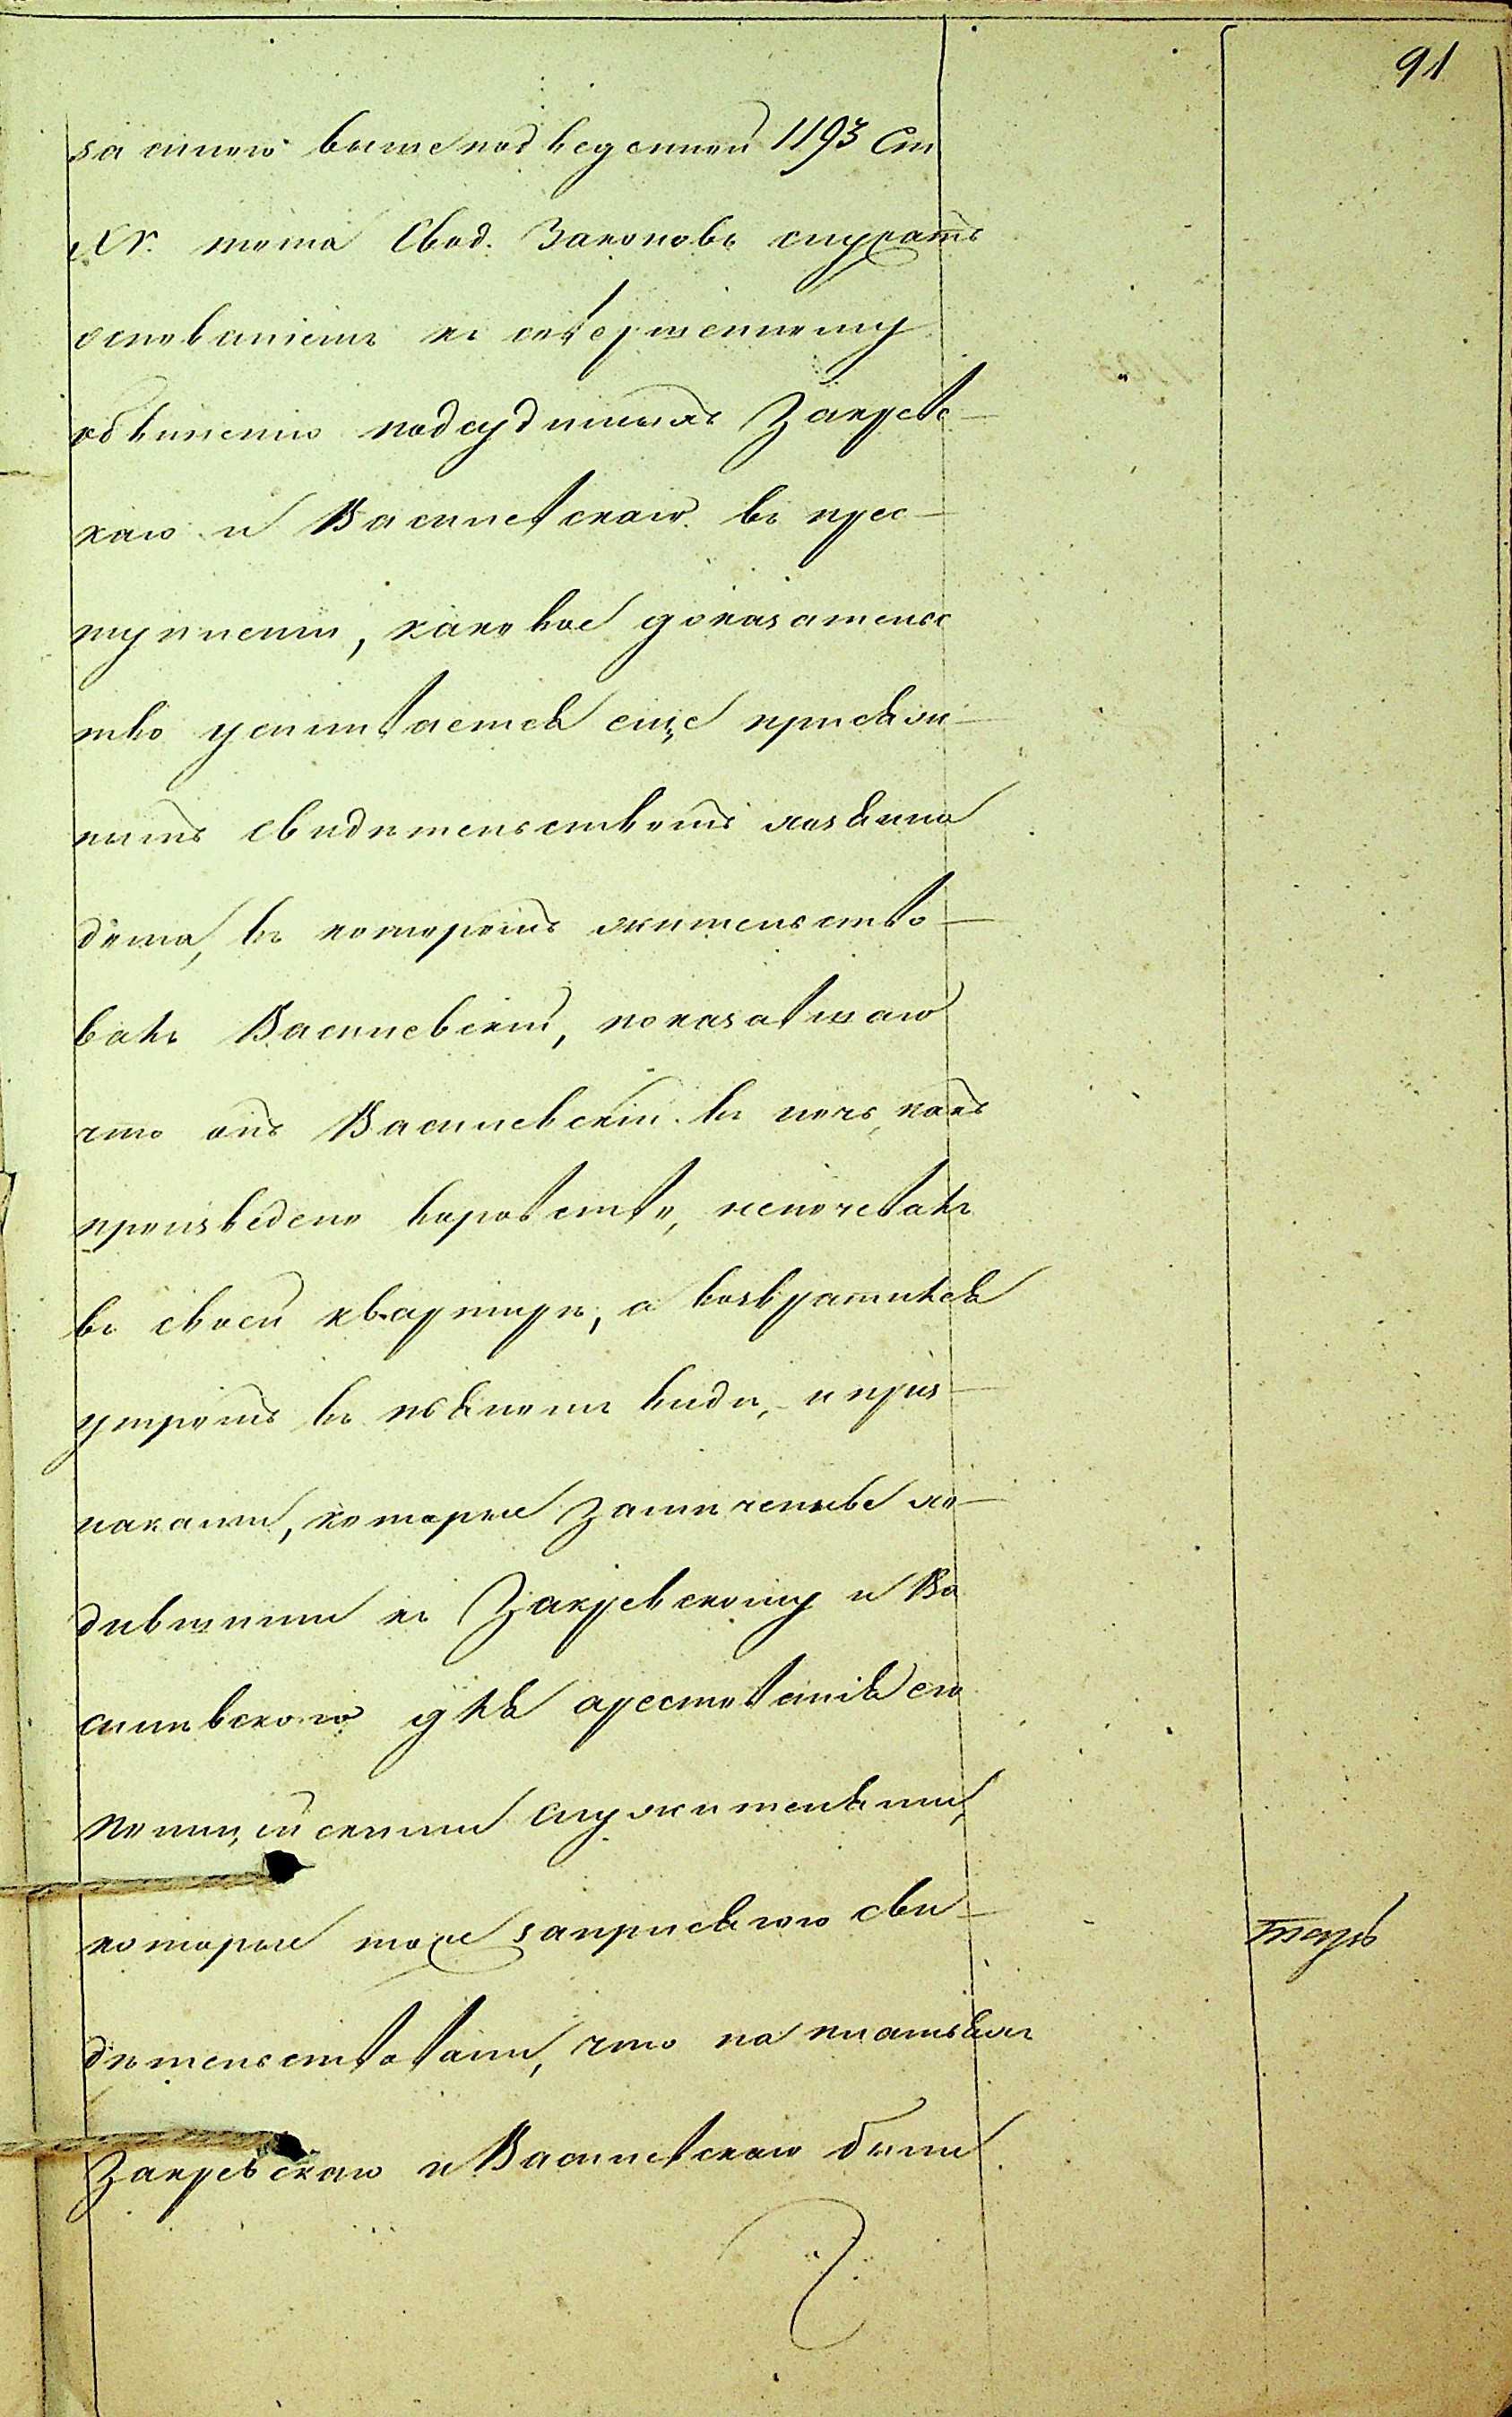 91
за силою вышеподведенной 1193 Ст
XV. тома Свод. Законовъ служатъ
основаніемъ къ совершенному
обвиненію подсудимыхъ Закревс-
каго и Василевскаго въ прес-
тупленіи, каковое доказательс
тво усиливается еще присяж-
нымъ свидѣтельствомъ хозяина
дома, въ которомъ жительство-
валъ Василевскій, показавшаго
что онъ Василевскій въ ночь, какъ
произведено воровство, неночевалъ
въ своей квартирѣ, а возвратился
утромъ въ пьяномъ видѣ, и приз-
наками, которые замѣчены хо-
дившими къ Закревскому и Ва
силевского для арестованія его
полицейскими служителями,
которые тоже заприсягою сви-
дѣтельствовали, что на платьяхъ
Закревскаго и Василевскаго были